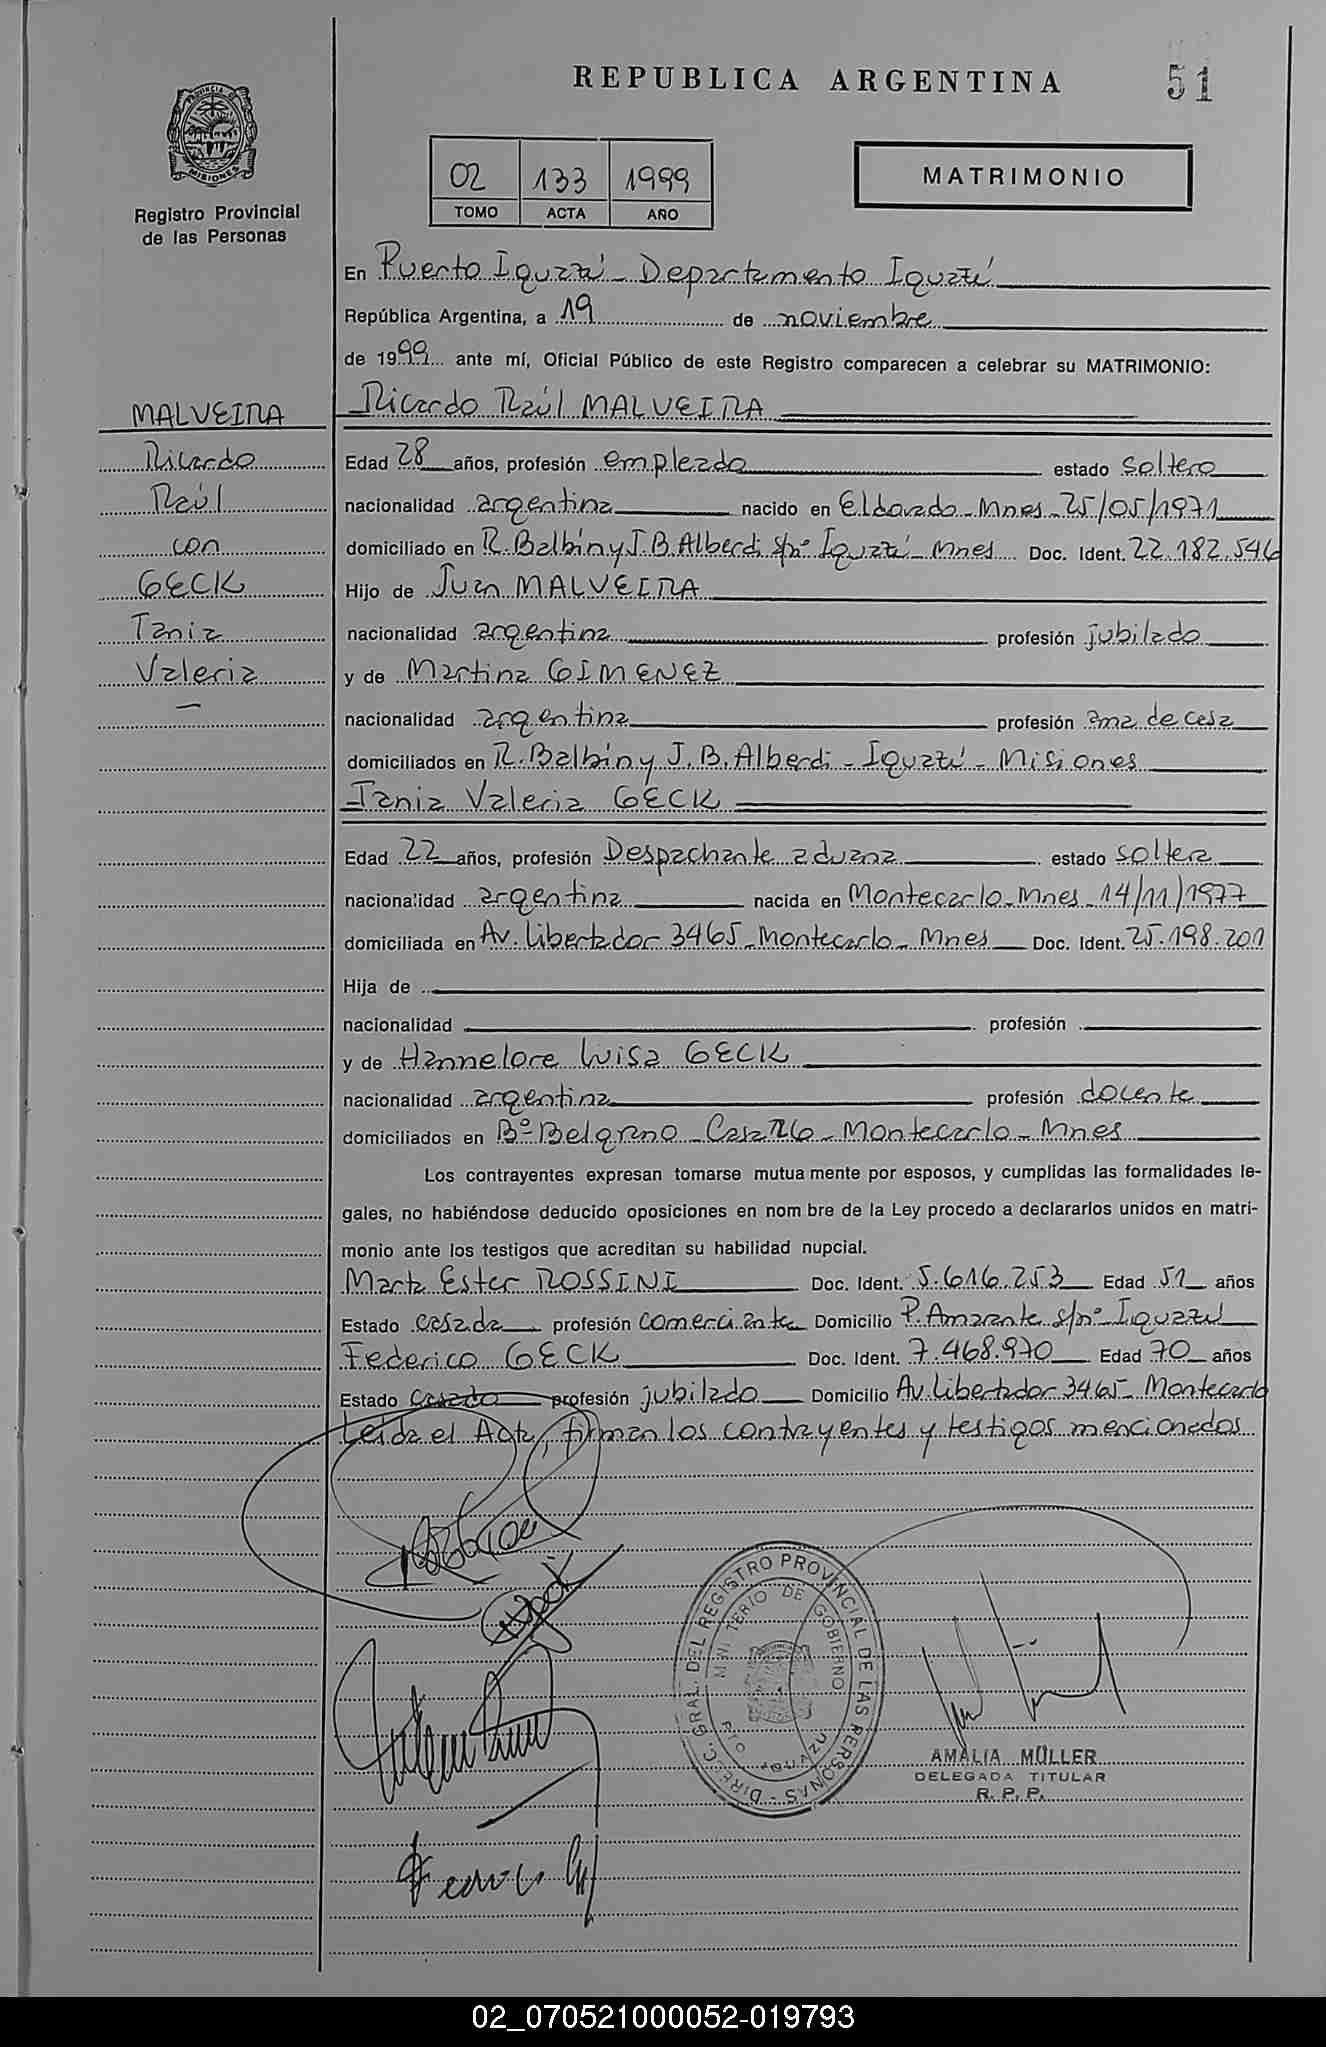 REPUBLICA ARGENTINA
51
PROVINCIA D
MISIONES
Registro Provincial
de las Personas
02 133 1999
TOMO ACTA AÑO
MATRIMONIO
En Puerto Iguazú - Departamento Iguazú
República Argentina, a 19 de noviembre
de 1999 ante mí, Oficial Público de este Registro comparecen a celebrar su MATRIMONIO:
MALVEIRA
Ricardo
Raúl
con
GECK
Tania
Valeria
Ricardo Raúl MALVEIRA
Edad 28 años, profesión empleado estado soltero
nacionalidad argentina nacido en Eldorado - Mnes - 25/05/1971
domiciliado en R. Balbín y J.B. Alberdi s/nº Iguazú - Mnes Doc. Ident. 22.182.546
Hijo de Juan MALVEIRA
nacionalidad argentina profesión jubilado
y de Martina GIMENEZ
nacionalidad argentina profesión ama de casa
domiciliados en R. Balbín y J. B. Alberdi - Iguazú - Misiones
Tania Valeria GECK
Edad 22 años, profesión Despachante aduana estado soltera
nacionalidad argentina nacida en Montecarlo - Mnes - 14/11/1977
domiciliada en Av. Libertador 3465 - Montecarlo - Mnes Doc. Ident. 25.198.201
Hija de
nacionalidad profesión
y de Hannelore Luisa GECK
nacionalidad argentina profesión docente
domiciliados en Bº Belgrano - Casa - Montecarlo - Mnes
Los contrayentes expresan tomarse mutua mente por esposos, y cumplidas las formalidades le-
gales, no habiéndose deducido oposiciones en nom bre de la Ley procedo a declararlos unidos en matri-
monio ante los testigos que acreditan su habilidad nupcial.
Marta Ester ROSSINI Doc. Ident. 5.616.253 Edad 51 años
Estado casada profesión comerciante Domicilio P. Amarante s/nº Iguazú
Federico GECK Doc. Ident. 7.468.970 Edad 70 años
Estado casado profesión jubilado Domicilio Av. Libertador 3465 - Montecarlo
Leída el Acta, firman los contrayentes y testigos mencionados
DIREC. GRAL. DEL REGISTRO PROVINCIAL DE LAS PERSONAS -
MINISTERIO DE GOBIERNO
PTO IGUAZU
AMALIA MÜLLER
DELEGADA TITULAR
R. P. P.
02_070521000052-019793